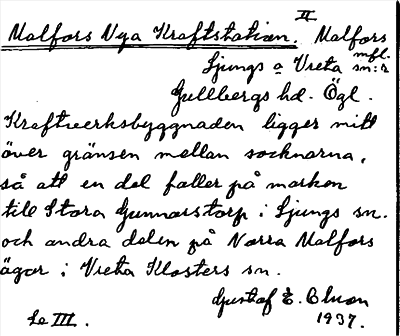 II
Malfors Nya Kraftstation. Malfors
mfl.
Ljungs o Vreta sn:r
Gullbergs hd. Ögl.
Kraftverksbyggnaden ligger mitt
över gränsen mellan socknarna,
så att en del faller på marken
till Stora Gunnarstorp i Ljungs sn.
och andra delen på Norra Malfors
ägor i Vreta Klosters sn.
Gustaf E.
Se III. 1937.